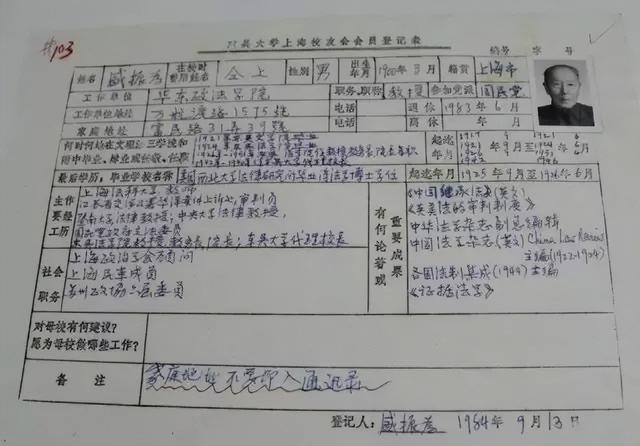 103
东吴大学上海校友会会员登记表
编号 字号
姓名 盛振为 在校时曾用姓名 仝上 性别 男 出生年月 1900年8月 籍贯 上海市
工作单位 华东政法学院 职务、职称 教授 参加党派 国民党
工作单位地址 万航渡路1575号 电话 退休 1983年6月
家庭地址 富民路31弄39号 电话 离休 年 月
何时何站在文理法三学院和附中毕业、肄业或任教、任职
起迄年月
最后学历:毕业学校名称 美国西北大学法律研究所毕业得法学博士学位 起迄年月 1925年9月至1926年6月
主要工作经历
上海法科大学教师
暨南大学法律教授;中央大学法律教授,
国民党政府立法委员
东吴法学院教授教务长,院长;东吴大学代理校长
有何论著或重要成果
《中国继承法》(英文)
《英美法的审判制度》
中华法学杂志副总编辑
中国法学杂志(英文)China Law Review
主编(1922-1924)
各国法制集成(1944)主编
《证据法学》
社会职务
上海政治学会顾问
上海民革成员
苏州政协六届委员
对母校有何建议?
愿为母校做哪些工作?
备注 家庭地址不要印入通迅录
登记人: 盛振为 1984年9月13日